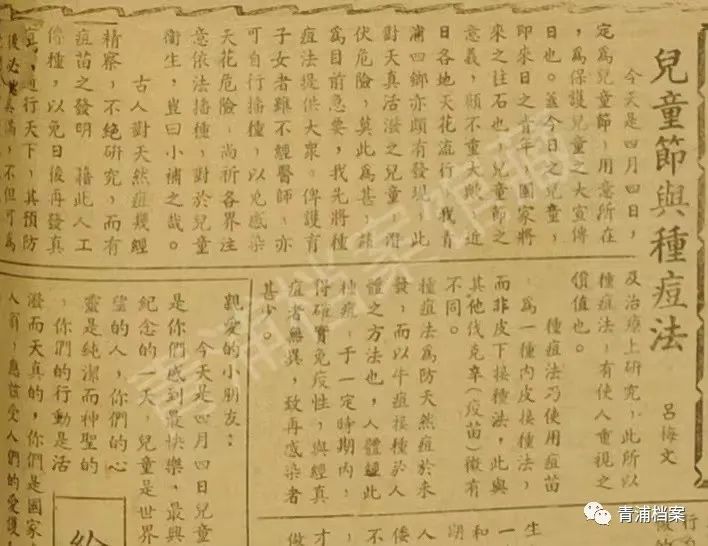 兒童節與種痘法
呂梅文
今天是四月四日,
定為兒童節,用意所在
,為保護兒童之大宣傳
日也。蓋今日之兒童,
即來日之青年,國家將
來之柱石也,兒童節之
意義,顧不重大歟,近
日各地天花流行,我青
浦四鄉亦頗有發現,此
對天真活潑之兒童,潛
伏危險,莫此為甚,茲
為目前急要,我先將種
痘法提供大衆。俾護育
子女者雖不經醫師,亦
可自行播種,以免感染
天花危險,尚祈各界注
意依法播種,對於兒童
衛生,豈曰小補之哉。
古人對天然痘幾經
精察,不絕研究,而有
痘苗之發明,藉此人工
佈種,以免日後再發真
,通行天下,其預防
後必滿,不但可為
及治療上研究,此所以
種痘法,有使人重視之
價值也。
種痘法乃使用痘苗
,為一種內皮接種法,
而非皮下接種法,此與
其他伐克辛(疫苗)微有
不同。
種痘法為防天然痘於未
發,而以牛痘接種於人
體之方法也,人體經此
種痘,于一定時期內,
得確實免疫性,與經真
痘者無異,致再感染者
甚少。
親愛的小朋友:
今天是四月四日兒童
是你們感到最快樂,最興
紀念的一天,兒童是世界
的人,你們的心
靈是純潔而神聖的
,你們的行動是活
潑而天真的,你們是國家
人翁,應該受人們的愛護
生
一
和
期
人
倭
不
才
做
行
青浦档案